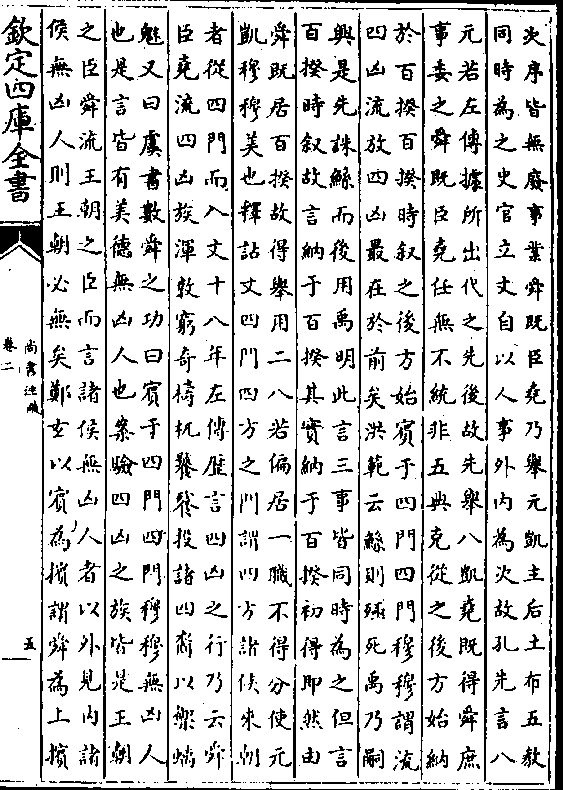 次序皆無廢事業舜既臣堯乃舉元凱主后土布五教
同時為之史官立文自以人事外内為次故孔先言八
元若左傳據所出代之先後故先舉八凱堯既得舜庶
事委之舜既臣堯任無不統非五典克從之後方始納
於百揆百揆時叙之後方始賓于四門四門穆穆謂流
四凶流放四凶最在於前矣洪範云鯀則殛死禹乃嗣
興是先誅鯀而後用禹明此言三事皆同時為之但言
百揆時叙故言納于百揆其實納于百揆初得即然由
舜既居百揆故得舉用二八若偏居一職不得分使元
凱穆穆美也釋詁文四門四方之門謂四方諸侯來朝
者從四門而入文十八年左傳歴言四凶之行乃云舜
臣堯流四凶族渾敦窮奇檮杌饕餮投諸四裔以禦螭
魅又曰虞書數舜之功曰賓于四門四門穆穆無凶人
也是言皆有美德無凶人也案驗四凶之族皆是王朝
之臣舜流王朝之臣而言諸侯無凶人者以外見内諸
侯無凶人則王朝必無矣鄭玄以賓為擯謂舜為上擯
欽定四庫全書
尚書注疏
卷二
五